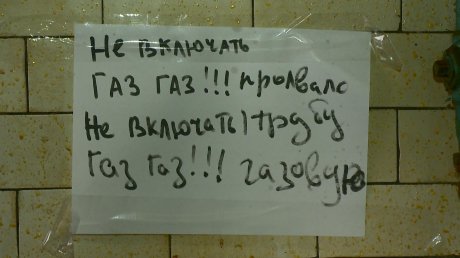 Не включать
ГАЗ ГАЗ!!! прорвало
Не включать! трубу
Газ Газ!!! газовую